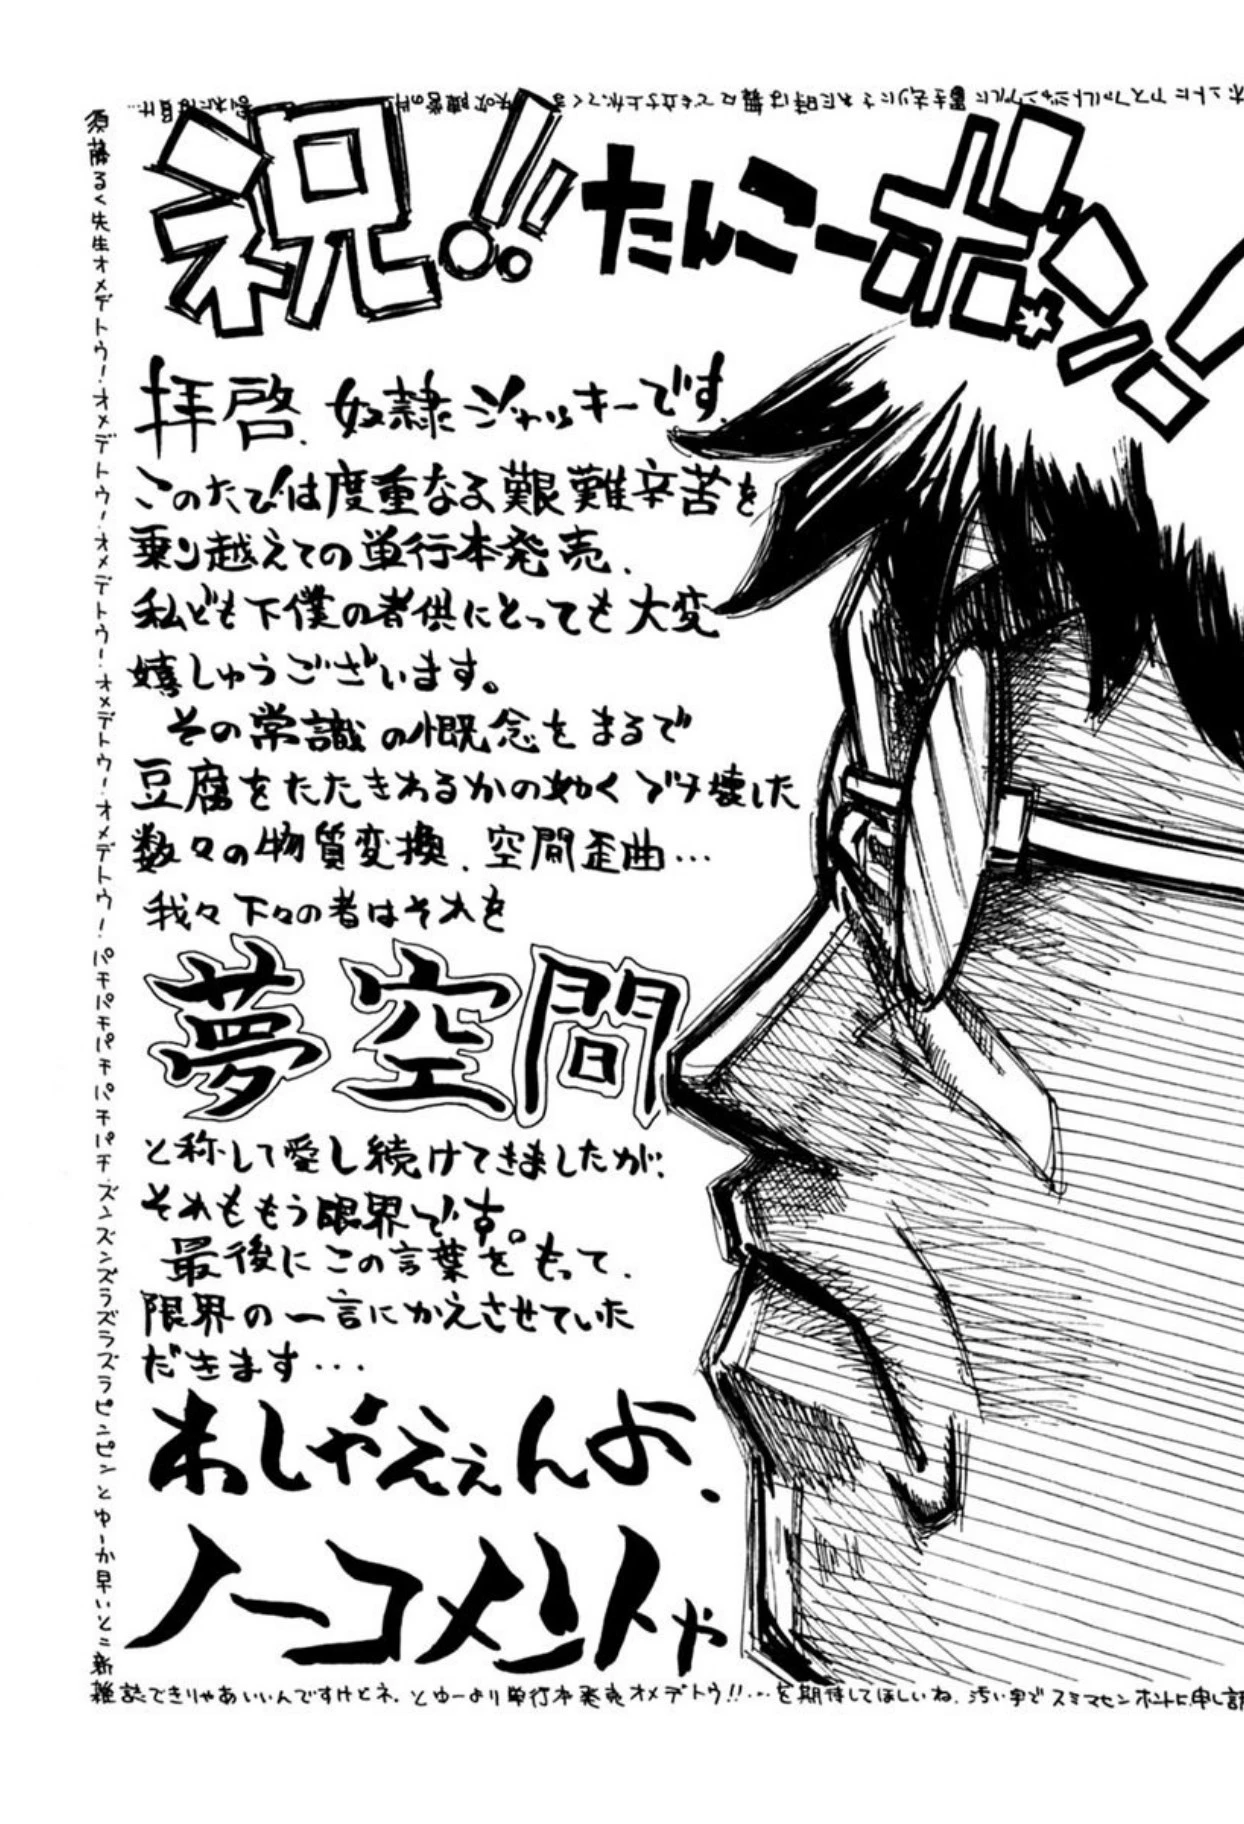 祝!!たんこーボン!
拝啓、奴隷ジャッキーです。
このたびは度重なる艱難辛苦を
乗り越えての単行本発売、
私ども下僕の者供にとっても大変
嬉しゅうございます。
その常識の概念をまるで
豆腐をたたきわるかの如くブチ壊した
数々の物質変換、空間歪曲…
我々下々の者はそれを
夢空間
と称して愛し続けてきましたが、
それももう限界です。
最後にこの言葉をもって、
限界の一言にかえさせていた
だきます…
わしゃええんよ、
ノーコメントや
須藤るく先生オメデトウ!オメデトウ!オメデトウ!オメデトウ!オメデトウ!パチパチパチパチパチズンズンズラズラズラピンピンとゆーか早いとこ新
雑誌できりゃあいいんですけどネ、とゆーより単行本発売オメデトウ!!…を期待してほしいね、汚い字でスミマセンホントに申し訳